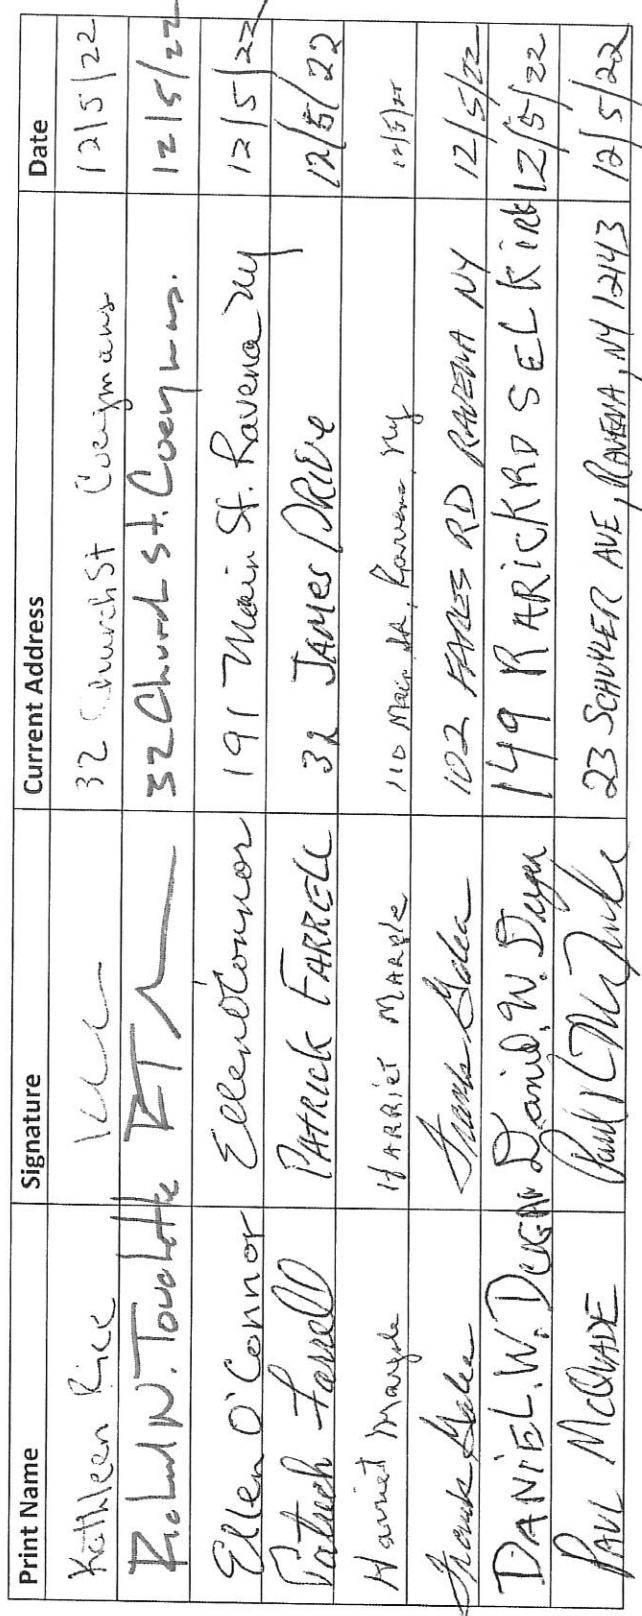 Print Name Signature Current Address Date
Kathleen Rice 32 Church St Coeymans 12/5/22
Richard N. Touchette 32 Church St. Coeymans. 12/5/22
Ellen O'Connor Ellen O'Connor 191 Main St. Ravena Ny 12/5/22
Patrick Farrell PATRICK FARRELL 32 JAMES DRIVE 12/5/22
Harriet HARRIET 110 Main St, Ravena, Ny 12/5/22
Frank Frank 102 RD RAVENA NY 12/5/22
DANIEL.W.DUGAN Daniel.W.Dugan 149 RARICK RD SELKIRK 12/5/22
PAUL McQUADE Paul McQuade 23 SCHUYLER AVE, RAVENA, NY 12143 12/5/22